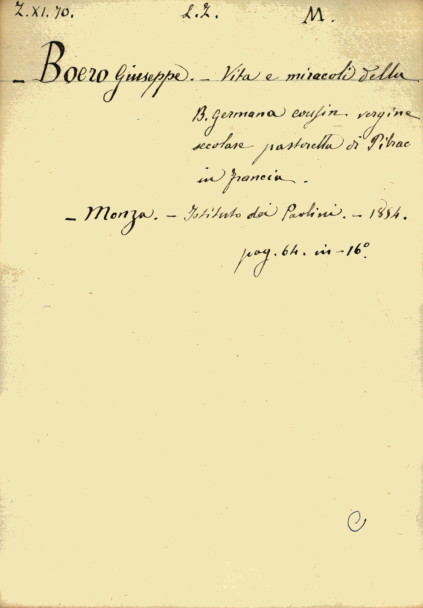 Z.XI.70. L.Z. M.
– Boero Giuseppe. – Vita e miracoli della
B. Germana Cousin vergine
secolare pastorella di Pibrac
in Francia.
– Monza. – Istituto dei Paolini. – 1854.
pag. 64. in – 16°.